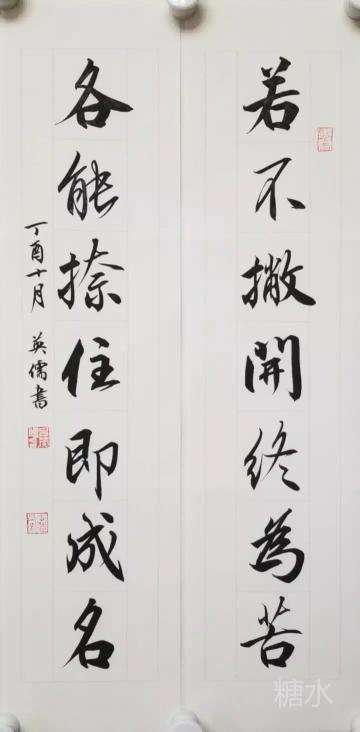 若不撇開終為苦
各能捺住即成名
丁酉十月 英儒書
糖水